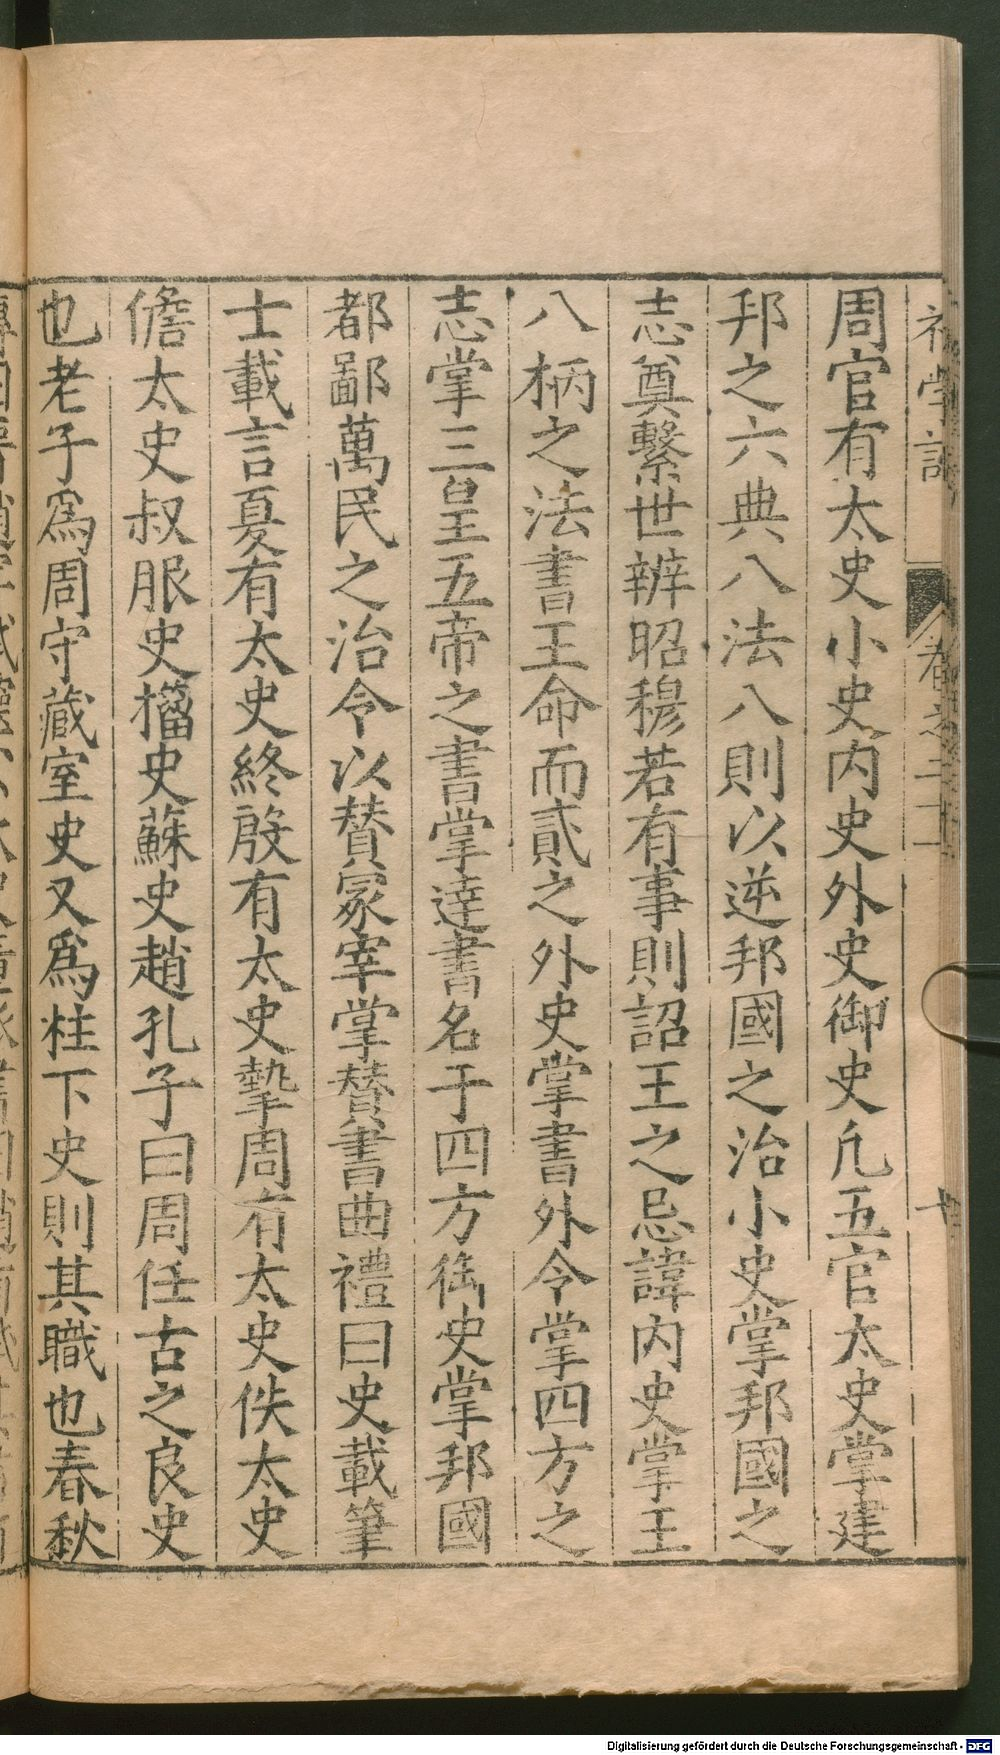 初學記 卷之二十一 十
周官有太史小史内史外史御史凡五官太史掌建
邦之六典八法八則以逆邦國之治小史掌邦國之
志奠繫世辨昭穆若有事則詔王之忌諱内史掌王
八柄之法書王命而貳之外史掌書外令掌四方之
志掌三皇五帝之書掌達書名于四方御史掌邦國
都鄙萬民之治令以賛冡宰掌賛書曲禮曰史載筆
士載言夏有太史終殷有太史摯周有太史佚太史
儋太史叔服史㩅史蘇史趙孔子曰周任古之良史
也老子爲周守藏室史又爲柱下史則其職也春秋
Digitalisierung gefördert durch die Deutsche Forschungsgemeinschaft - DFG